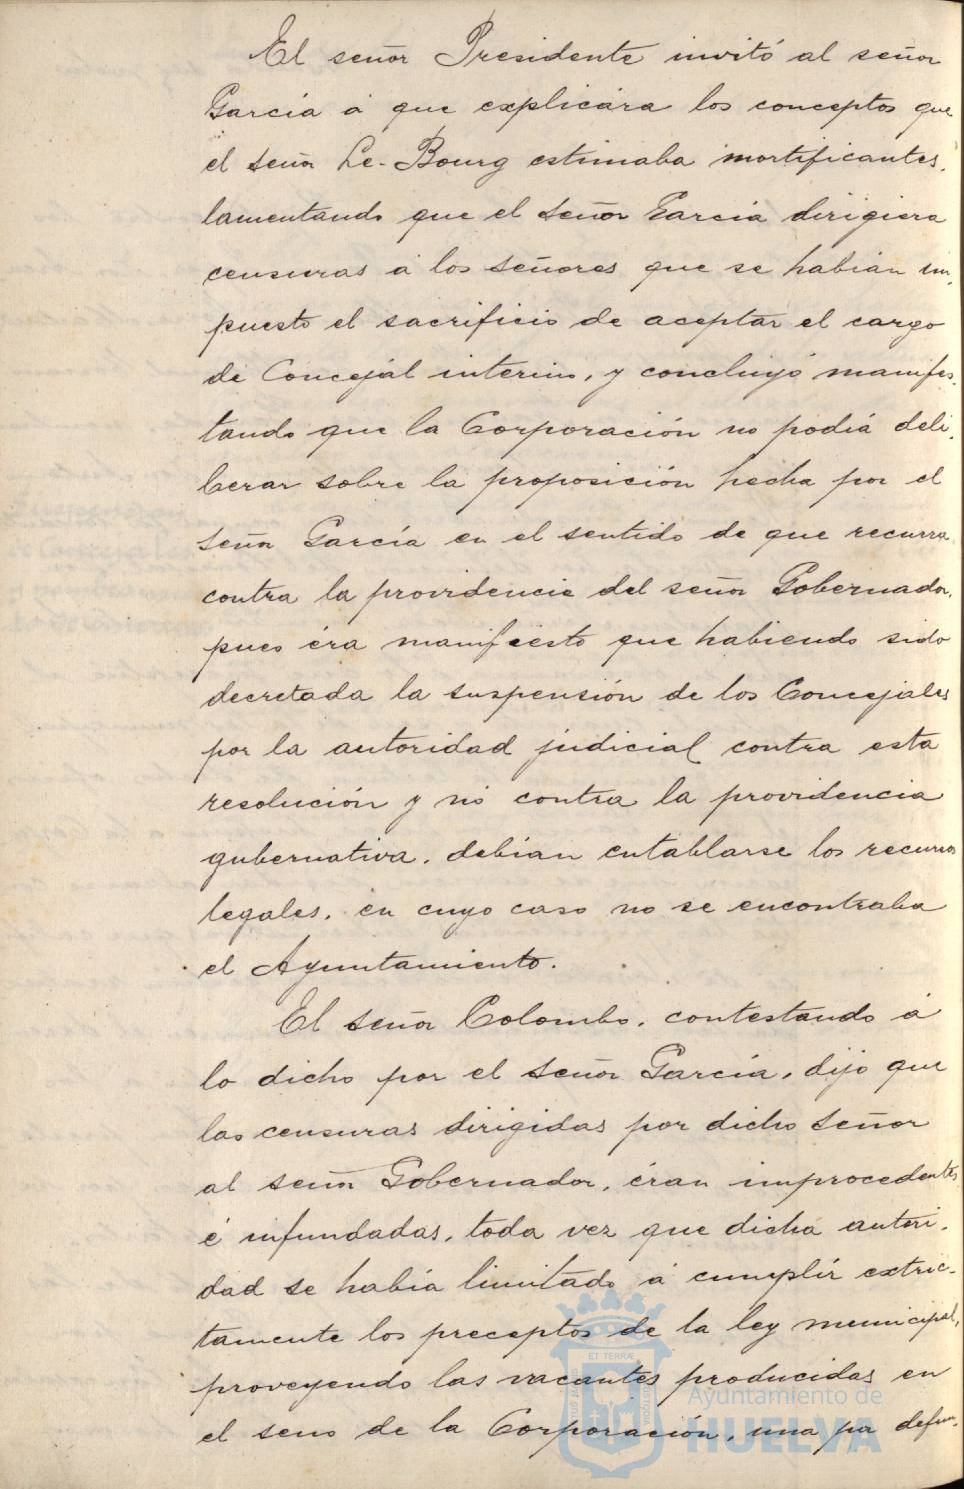 El señor Presidente invitó al señor
García á que explicára los conceptos que
el señor Le-Bourg estimaba mortificantes,
lamentando que el señor García dirigiera
censuras á los señores que se habían im-
puesto el sacrificio de aceptar el cargo
de Concejál interino, y concluyó manifes-
tando que la Corporación no podiá deli-
berar sobre la proposición hecha por el
señor García en el sentido de que recurra
contra la providencia del señor Gobernador,
pues éra manifiesto que habiendo sido
decretada la suspensión de los Concejales
por la autoridad judicial contra esta
resolución y nó contra la providencia
gubernativa, debían entablarse los recursos
legales, en cuyo caso no se encontraba
el Ayuntamiento.
El señor Colombo, contestando á
lo dicho por el señor García, dijo que
las censuras dirigidas por dicho señor
al señor Gobernador, éran improcedentes
é infundadas, toda vez que dicha autori-
dad se había limitado á cumplír extric-
tamente los preceptos de la ley municipal,
proveyendo las vacantes producidas en
el seno de la Corporación, una por defun-
ET TERRÆ
PORTUS MARIS
CUSTODIA
Ayuntamiento de
HUELVA